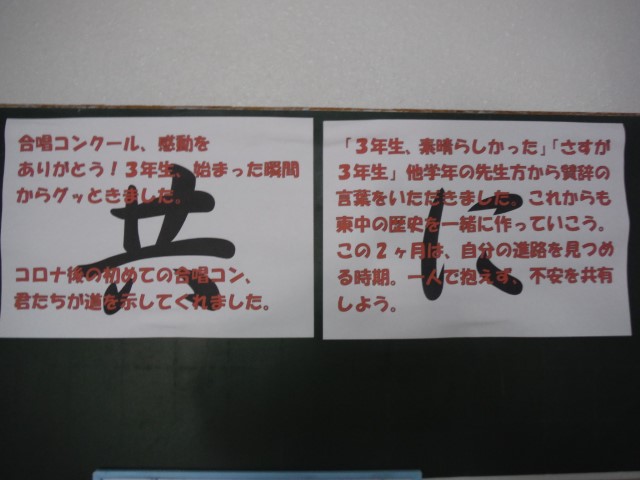 合唱コンクール、感動を
ありがとう！３年生、始まった瞬間
からグッときました。
コロナ後の初めての合唱コン、
君たちが道を示してくれました。
共
「３年生、素晴らしかった」「さすが
３年生」他学年の先生方から賛辞の
言葉をいただきました。これからも
東中の歴史を一緒に作っていこう。
この２ヶ月は、自分の進路を見つめ
る時期。一人で抱えず、不安を共有
しよう。
に